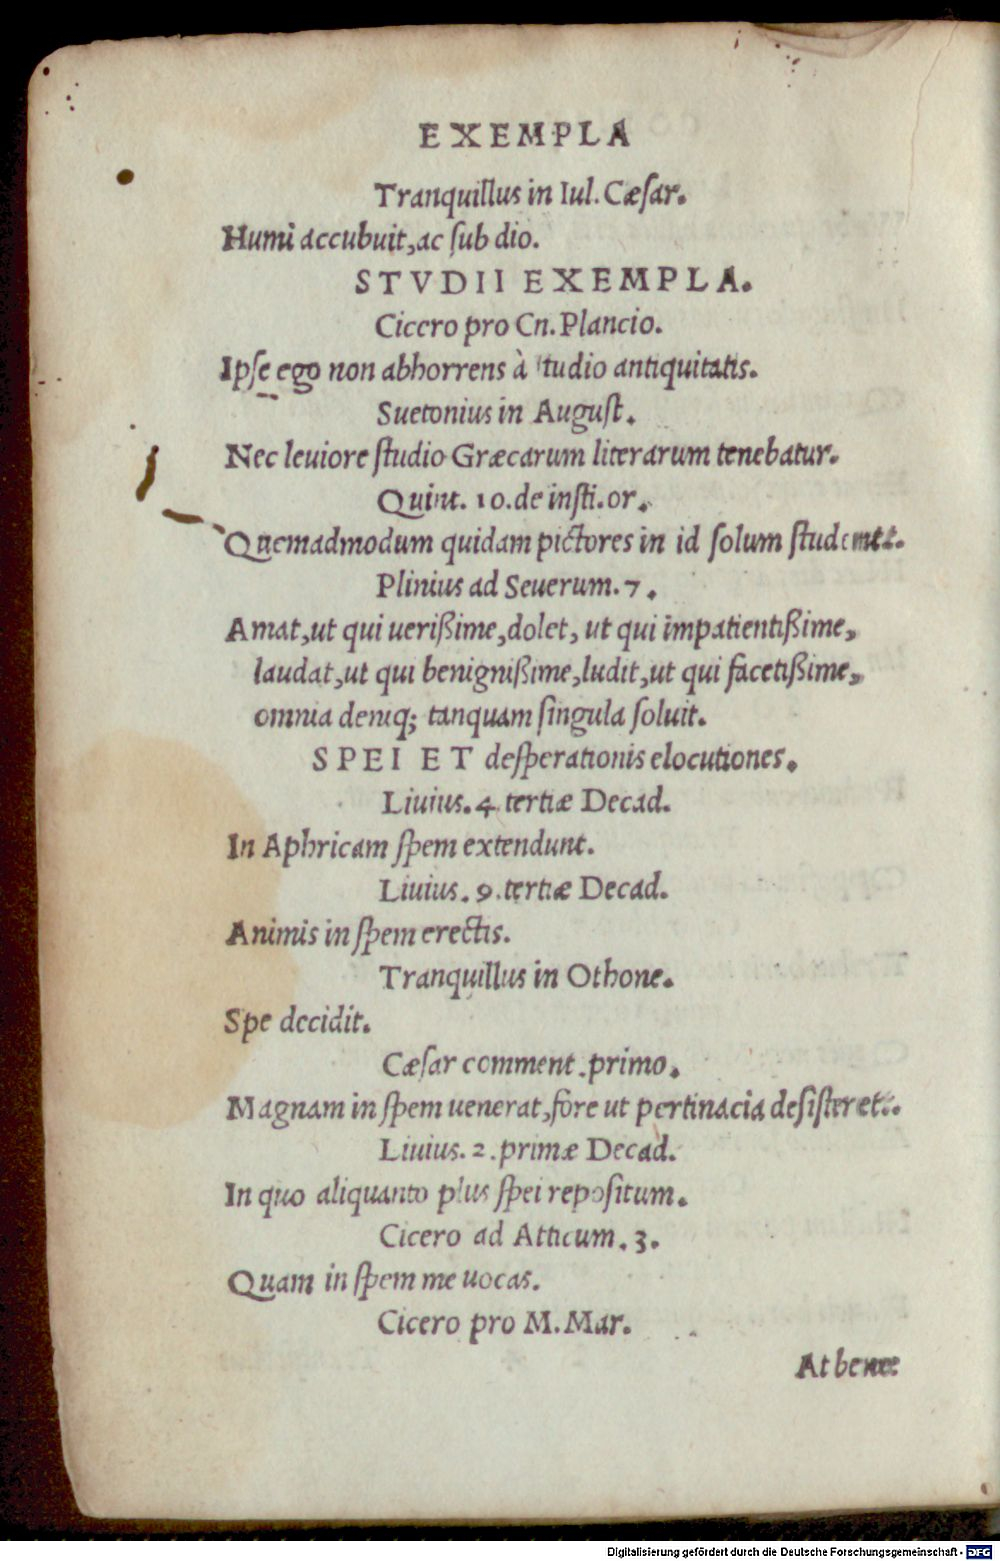 EXEMPLA
Tranquillus in Iul. Cæſar.
Humi accubuit, ac ſub dio.
STVDII EXEMPLA.
Cicero pro Cn. Plancio.
Ipſe ego non abhorrens à ſtudio antiquitatis.
Suetonius in Auguſt.
Nec leuiore ſtudio Græcarum literarum tenebatur.
Quint. 10. de inſti. or.
Quemadmodum quidam pictores in id ſolum ſtudent.
Plinius ad Seuerum. 7.
Amat, ut qui uerißime, dolet, ut qui impatientißime,
laudat, ut qui benignißime, ludit, ut qui facetißime,
omnia deniq; tanquam ſingula ſoluit.
SPEI ET deſperationis elocutiones.
Liuius. 4. tertiæ Decad.
In Aphricam ſpem extendunt.
Liuius. 9. tertiæ Decad.
Animis in ſpem erectis.
Tranquillus in Othone.
Spe decidit.
Cæſar comment. primo.
Magnam in ſpem uenerat, fore ut pertinacia deſiſteret.
Liuius. 2. primæ Decad.
In quo aliquanto plus ſpei repoſitum.
Cicero ad Atticum. 3.
Quam in ſpem me uocas.
Cicero pro M. Mar.
Athenæ
Digitalisierung gefördert durch die Deutsche Forschungsgemeinschaft - DFG